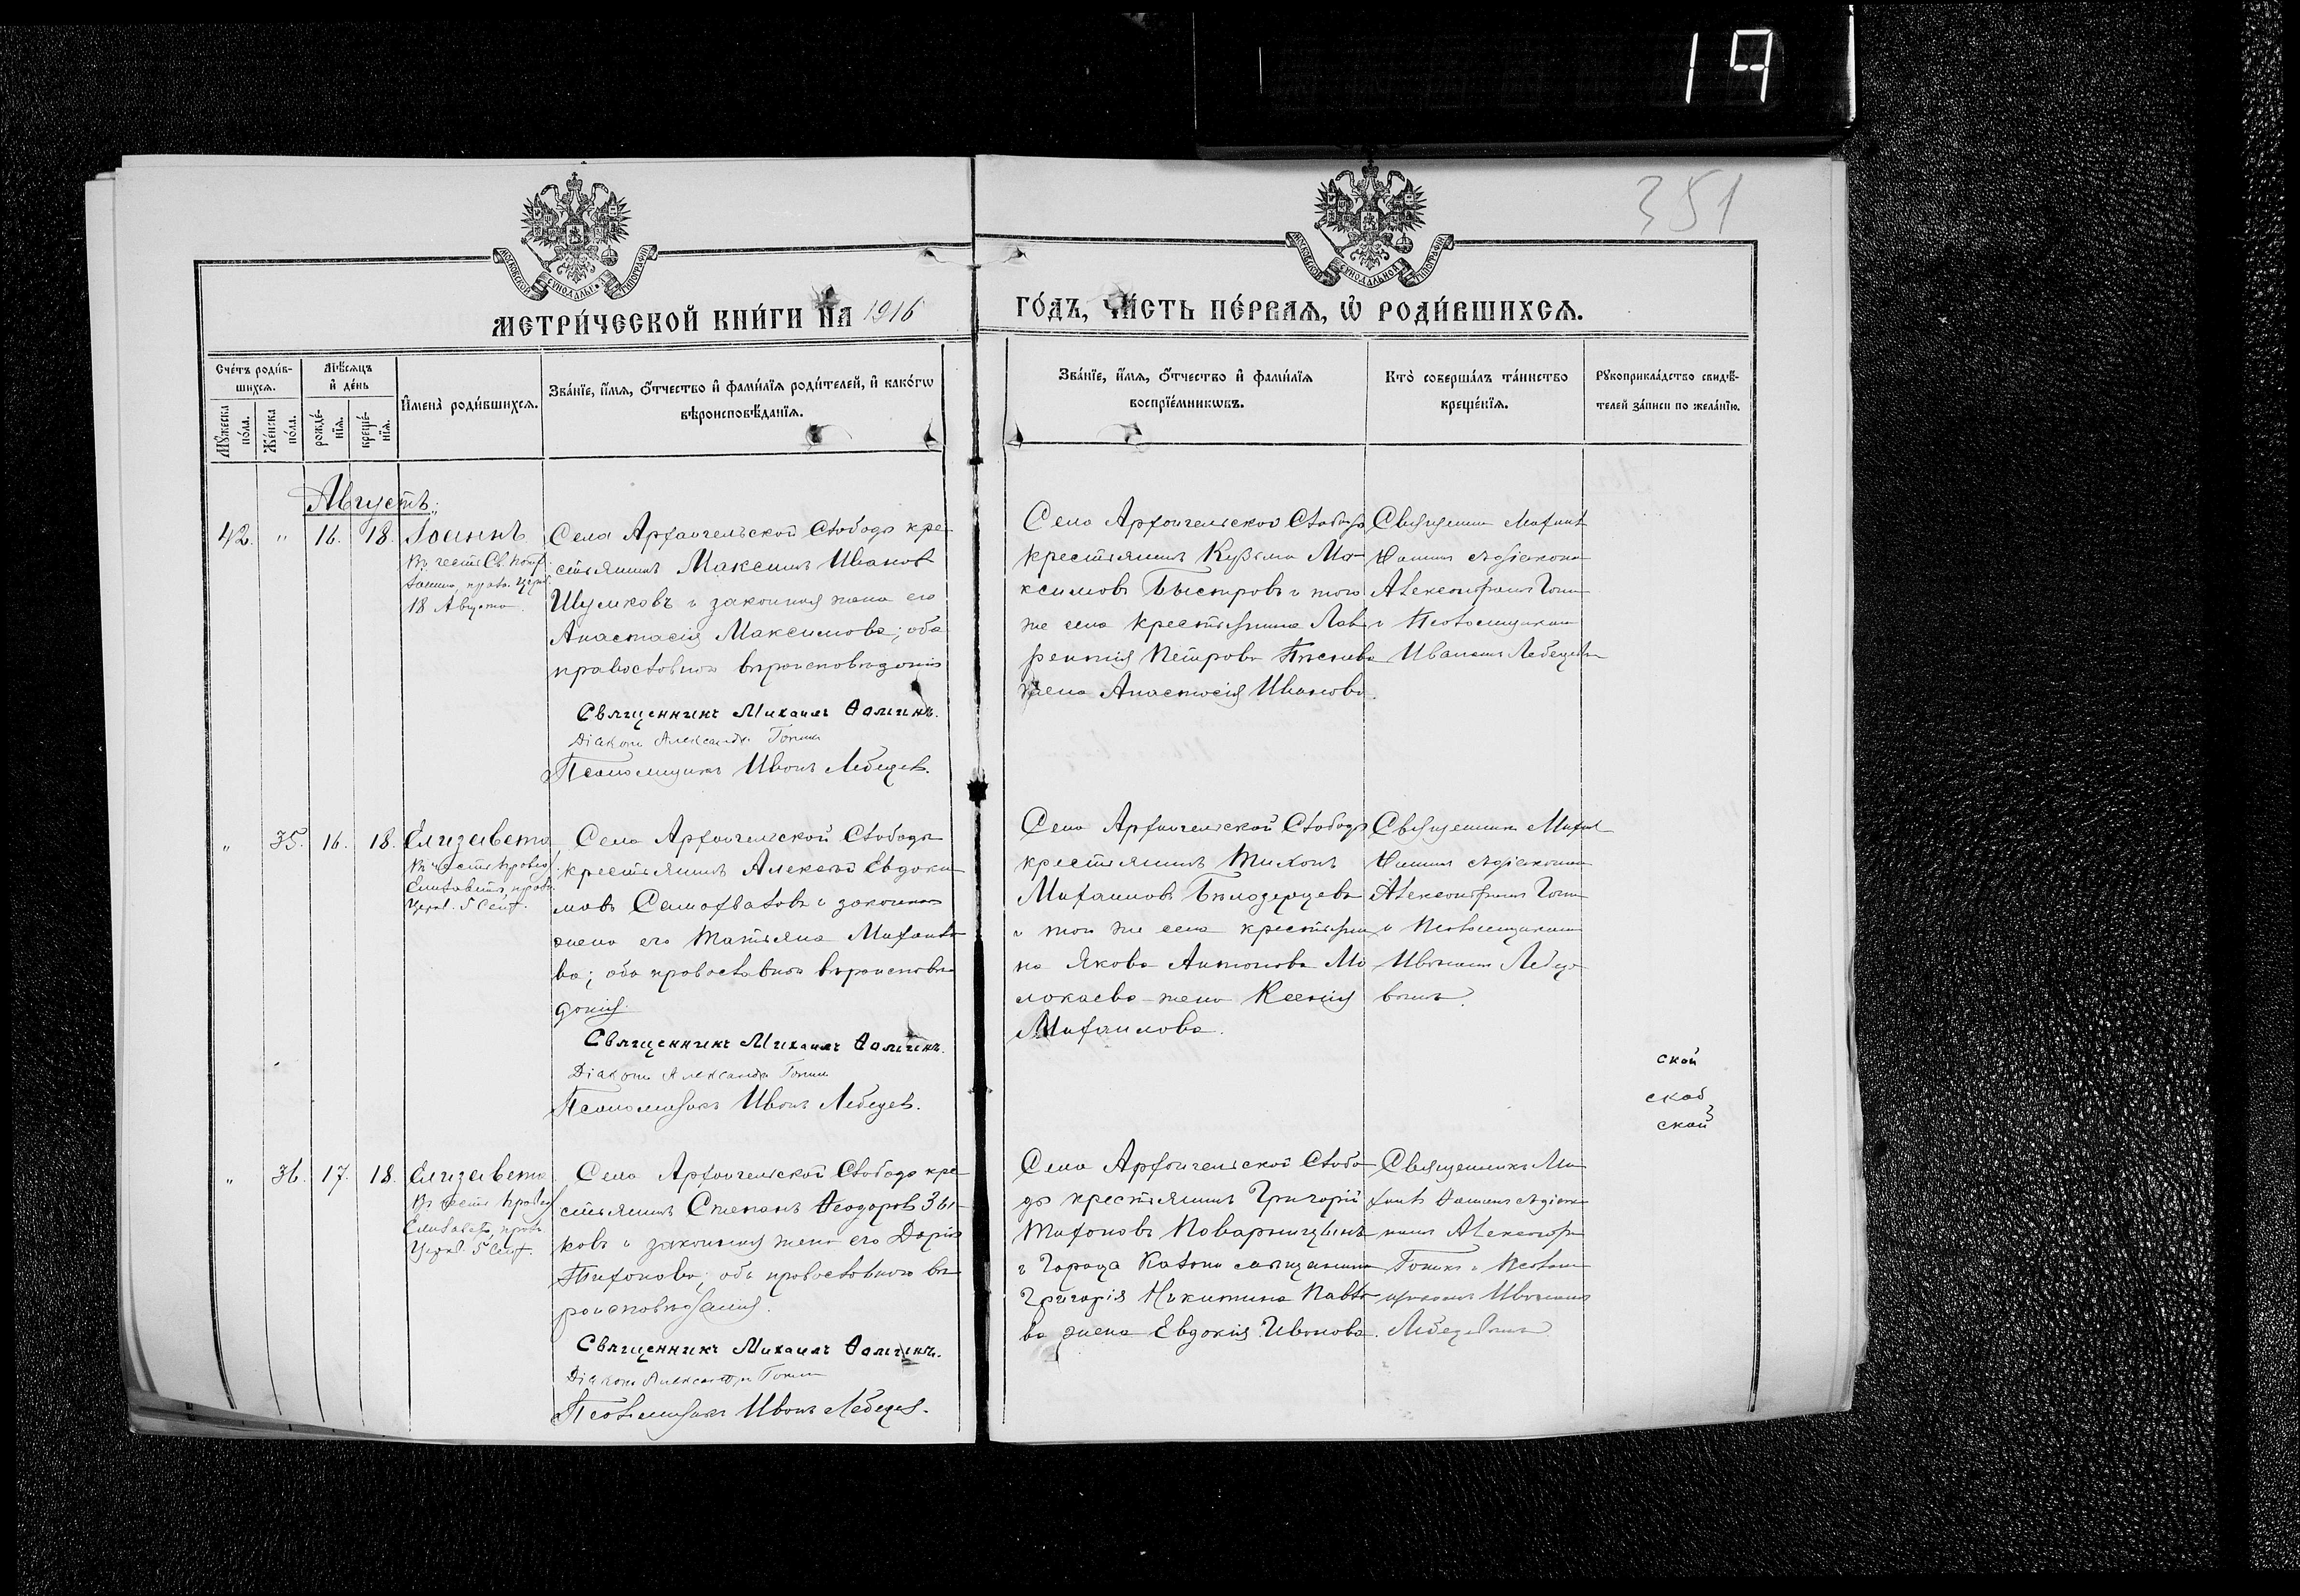 19
351
МОСКОВСКОЙ СѴНОДАЛЬНОЙ ТИПОГРАФІИ
МОСКОВСКОЙ СѴНОДАЛЬНОЙ ТИПОГРАФІИ
МЕТРИ́ЧЕСКОЙ КНИ́ГИ НА 1916
ГО́ДЪ, ЧА́СТЬ ПЕ́РВАѦ, Ѡ҆ РОДИ́ВШИХСѦ.
Сче́тъ роди́в-
шихсѧ.
Мꙋ́жеска
по́ла.
Же́нска
по́ла.
Мѣ́сѧцъ
и҆ де́нь
рожде́-
нїѧ.
креще́-
нїѧ.
И҆мена̀ роди́вшихсѧ.
Зва́нїе, и҆́мѧ, ѻ҆́тчество и҆ фами́лїѧ роди́телей, и҆ како́гѡ
вѣроисповѣ́данїѧ.
Зва́нїе, и҆́мѧ, ѻ҆́тчество и҆ фами́лїѧ
воспрїе́мникѡвъ.
Кто̀ соверша́лъ та́инство
креще́нїѧ.
Рꙋкоприкла́дство свидѣ́-
телей за́писи по жела́нїю.
Августъ.
42. " 16. 18. Іоаннъ
Въ честь Св. Патр.
Іоанна, празд. Церк.
18 Августа.
Села Архангельской Слободы кре-
стьянинъ Максимъ Иванов
Шумковъ и законная жена его
Анастасія Максимова; оба
православнаго вѣроисповѣданія
Священникъ Михаилъ Ѳоминъ.
Діаконъ Александръ Тонинъ
Псаломщикъ Иванъ Лебедев.
Села Архангельской Слободы
крестьянинъ Кузьма Ма-
ксимовъ Быстровъ и того
же села крестьянина Лав-
рентія Петрова
жена Анастасія Иванова.
Священник Михаил
Ѳомин съ діаконом
Александром Тонин
и Псаломщиком
Иваном Лебедев
" 35. 16. 18. Елизавета
Въ честь правед.
Елисаветы, празд.
Церк. 5 Сент.
Села Архангельской Слободы
крестьянинъ Алексѣй Евдоки-
мовъ Самохваловъ и законная
жена его Татьяна Михайло-
ва; оба православнаго вѣроисповѣ-
данія.
Священникъ Михаилъ Ѳоминъ.
Діаконъ Александръ Тонинъ
Псаломщикъ Иванъ Лебедев.
Села Архангельской Слободы
крестьянинъ Тихонъ
Михаиловъ Бѣлозерцевъ
и того же села крестьяни-
на Якова Антонова Мо-
локаева жена Ксенія
Михаилова.
Священник Михаил
Ѳомин съ діаконом
Александром Тонин
и Псаломщиком
Иваном Лебеде-
вымъ.
ской
ской
ской
" 36. 17. 18. Елизавета
Въ честь правед.
Елисаветы, празд.
Церкв. 5 Сент.
Села Архангельской Слободы кре-
стьянинъ Степанъ Ѳеодоров Зы-
ковъ и законная жена его Дарія
Тихонова; оба православнаго вѣ-
роисповѣданія.
Священникъ Михаилъ Ѳоминъ.
Діаконъ Александръ Тонинъ
Псаломщикъ Иванъ Лебедев.
Села Архангельской Слобо-
ды крестьянинъ Григорій
Тихоновъ Поварницынъ
и города Казани мѣщанина
Григорія Никитина Павло-
ва жена Евдокія Иванова.
Священникъ Ми-
хаил Ѳомин съ діако-
ном Александр
Тонин и Псалом-
щиком Иваном
Лебедевым